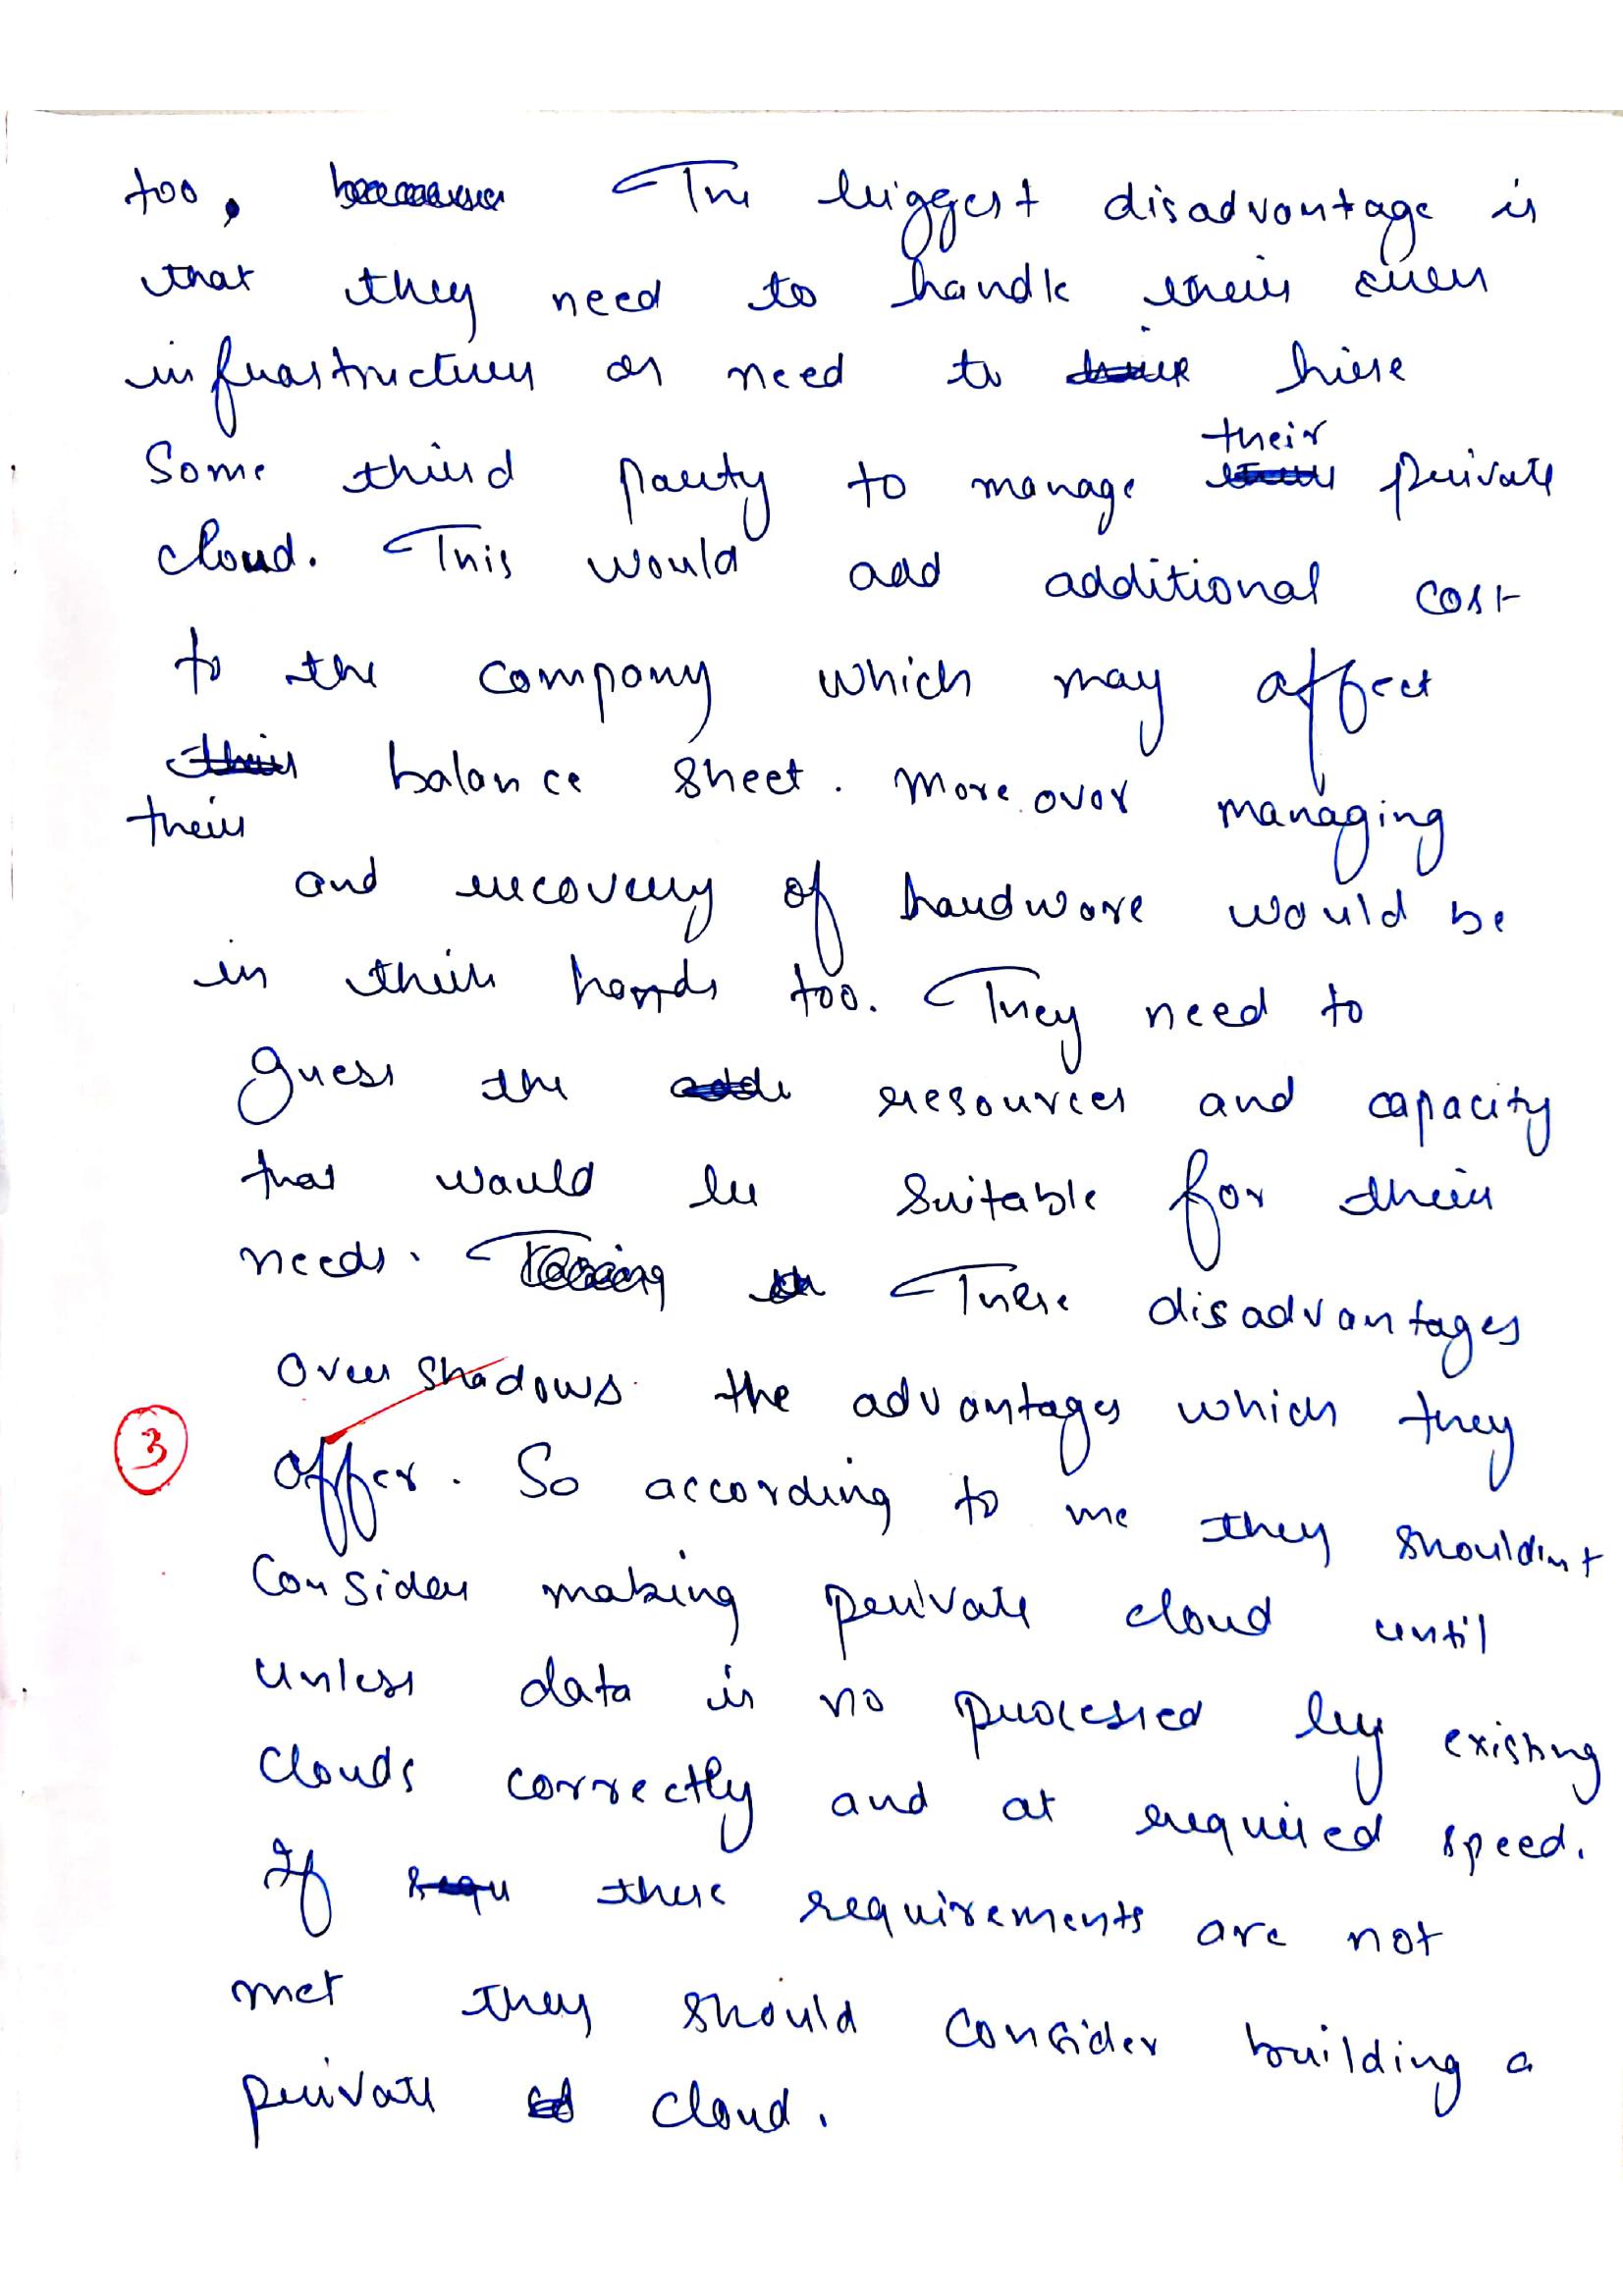 too. The biggest disadvantage is
that they need to handle their own
infrastructure or need to hire
some third party to manage their private
cloud. This would add additional cost
to the company which may affect
their balance sheet. Moreover managing
and recovery of hardware would be
in their hands too. They need to
guess the resources and capacity
that would be suitable for their
needs. These disadvantages
overshadows the advantages which they
3
offer. So according to me they shouldn't
consider making private cloud until
unless data is no processed by existing
clouds correctly and at required speed.
If these requirements are not
met they should consider building a
private cloud.